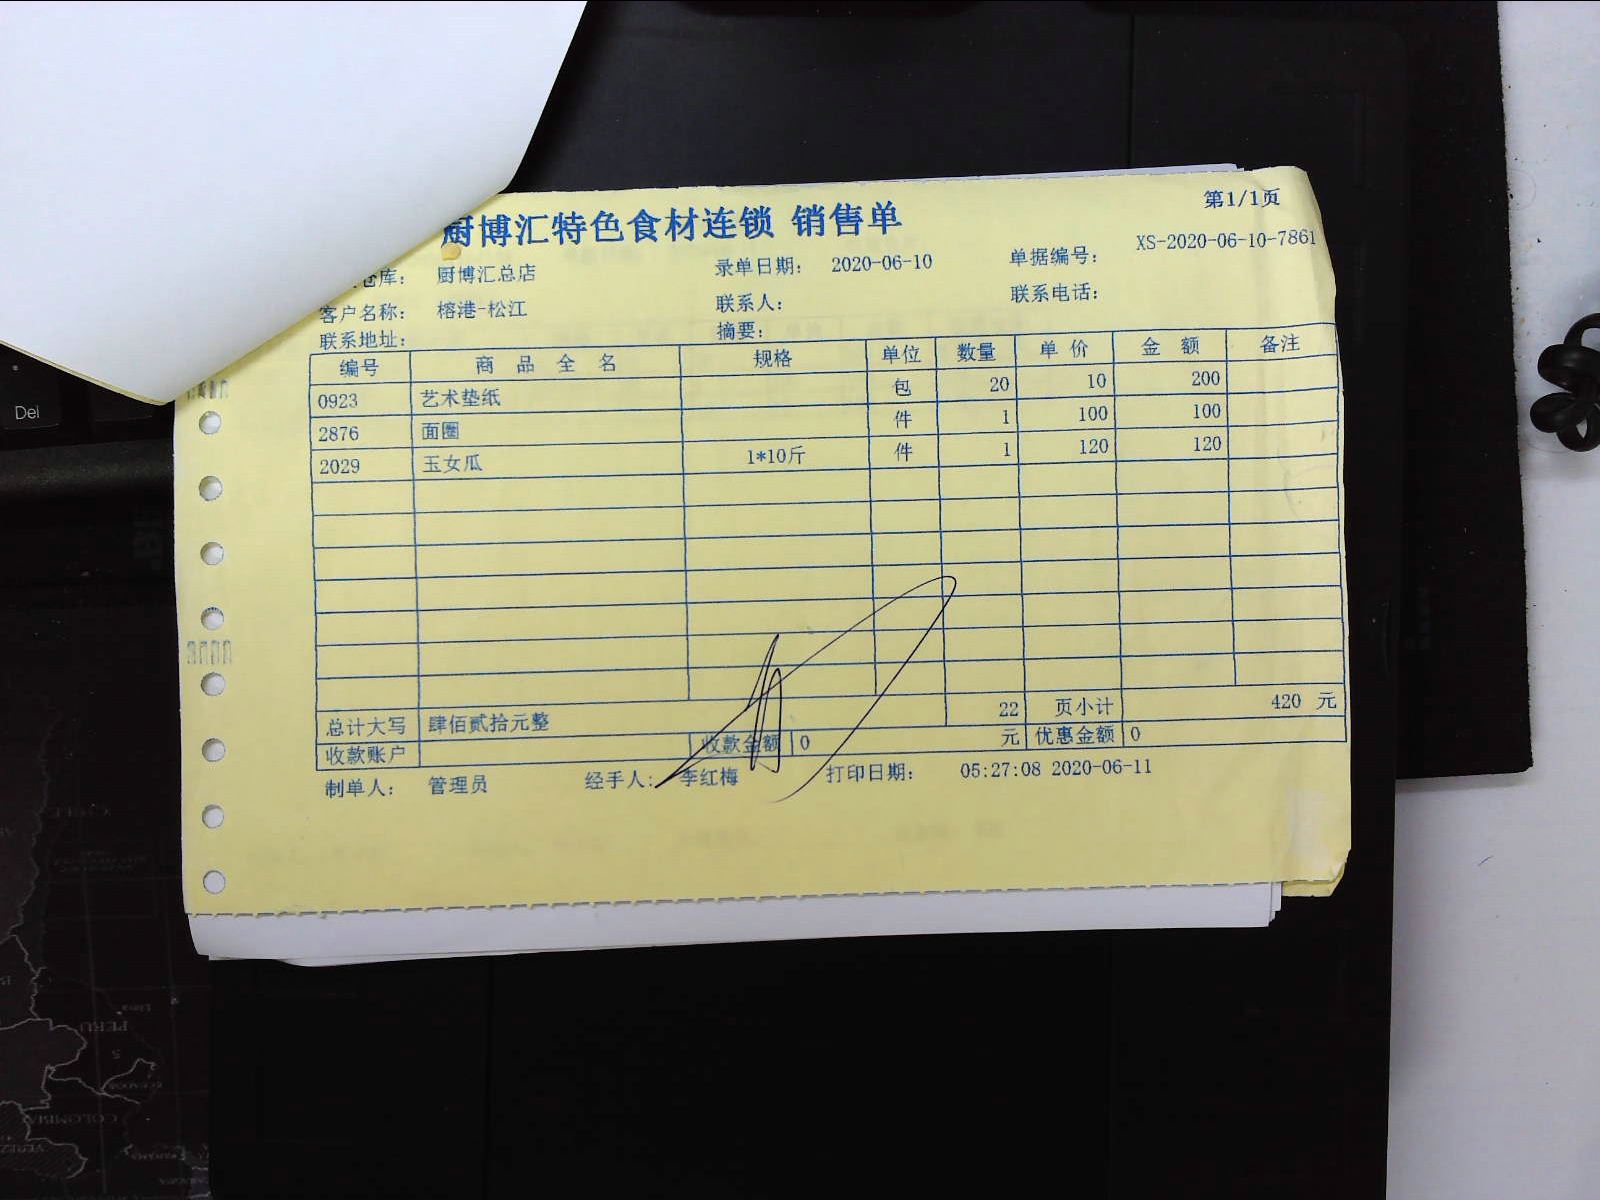 第1/1页
厨博汇特色食材连锁 销售单
仓库： 厨博汇总店 录单日期： 2020-06-10 单据编号： XS-2020-06-10-7861
客户名称： 榕港-松江 联系人： 联系电话：
联系地址： 摘要：
编号 商 品 全 名 规格 单位 数量 单 价 金 额 备注
0923 艺术垫纸 包 20 10 200
2876 面圈 件 1 100 100
2029 玉女瓜 1*10斤 件 1 120 120
总计大写 肆佰贰拾元整 22 页小计 420 元
收款账户 收款金额 0 元 优惠金额 0
制单人： 管理员 经手人： 李红梅 打印日期： 05:27:08 2020-06-11
Del
PERU